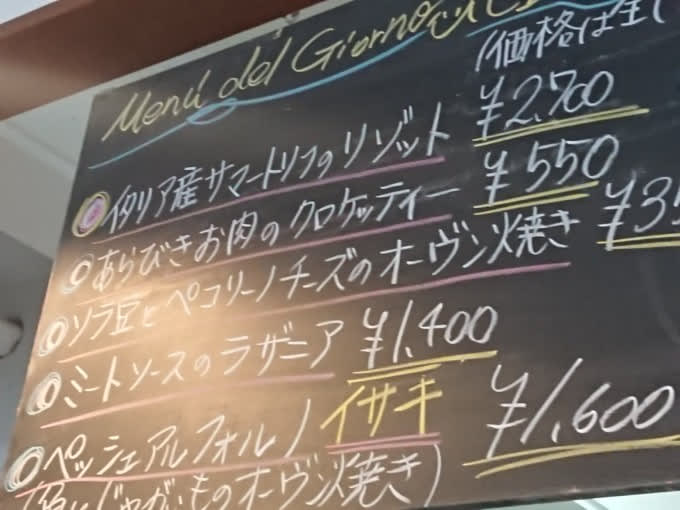 Menú del Giorno
(価格は全
イタリア産サマートリフのリゾット ¥2,700
あらびきお肉のクロケッティー ¥550
ソラ豆とペコリーノチーズのオーヴン焼き ¥35
ミートソースのラザニア ¥1,400
ペッシェアルフォルノ イサキ ¥1,600
じゃがいものオーヴン焼き)